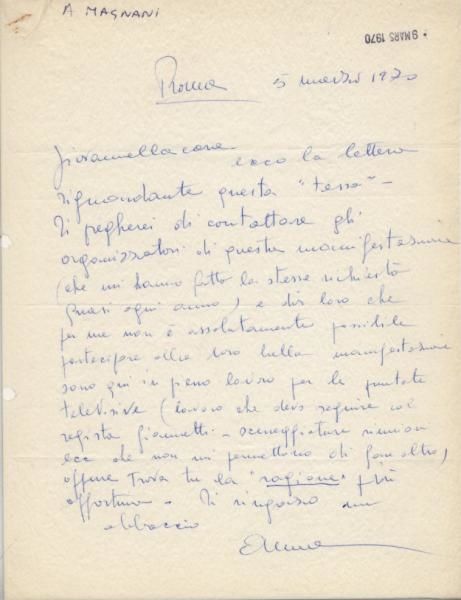 A MAGNANI
9 MARS 1970
Roma 5 marzo 1970
Giovannella cara
ecco la lettera
riguardante questa "tessa" -
Ti pregherei di contattare gli
organizzatori di questa manifestazione
(che mi hanno fatto la stessa richiesta
quasi ogni anno) e dir loro che
per me non è assolutamente possibile
partecipare alla loro bella manifestazione
sono qui in pieno lavoro per le puntate
televisive (lavoro che devo seguire col
regista Giannetti - sceneggiature riunioni
ecc che non mi permettono di far altro)
oppure trova tu la "ragione" più
opportuna - Ti ringrazio un
abbraccio
Anna